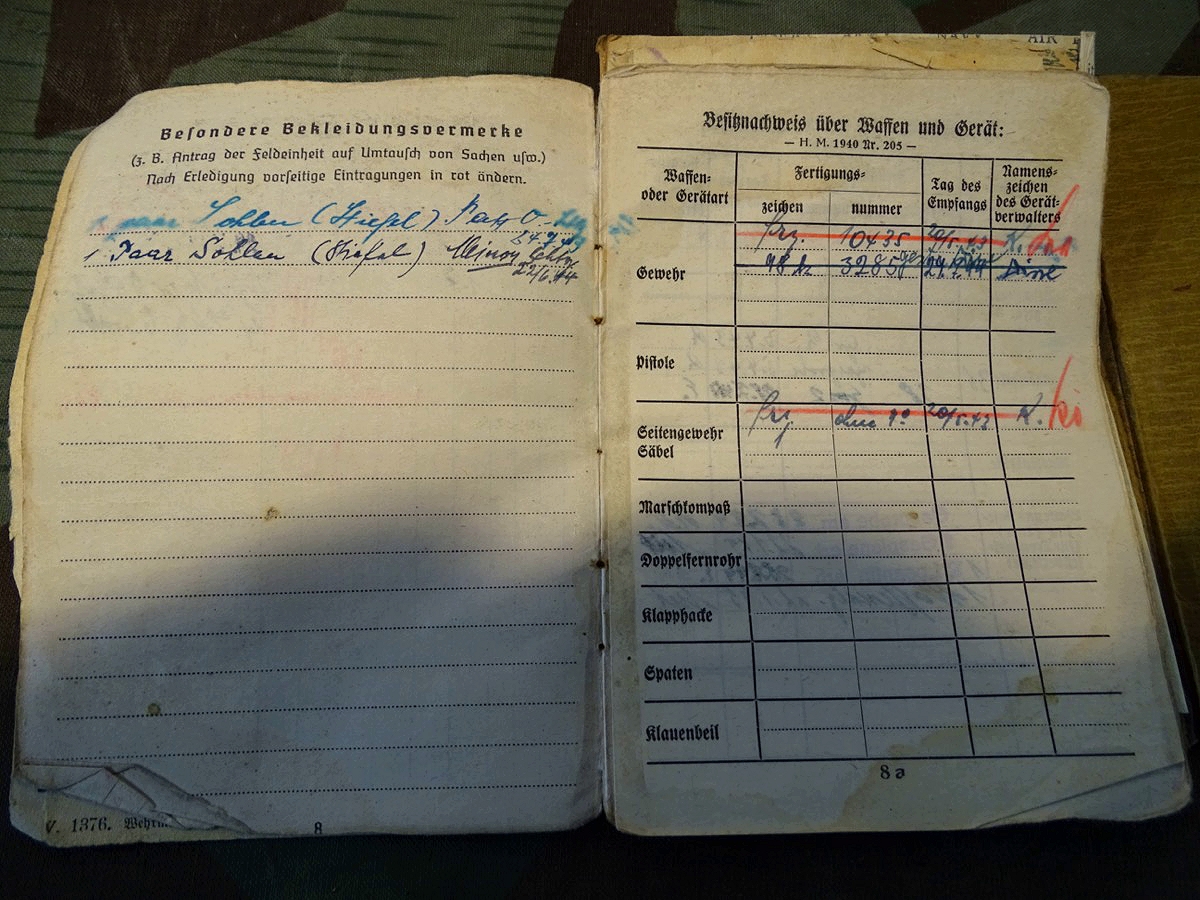 Besondere Bekleidungsvermerke
(z. B. Antrag der Feldeinheit auf Umtausch von Sachen usw.)
Nach Erledigung vorseitige Eintragungen in rot ändern.
Paar Sohlen (Stiefel)
1 Paar Sohlen (Stiefel)
22/6.44
V. 1376.
8
AIR
Besitznachweis über Waffen und Gerät:
— H. M. 1940 Nr. 205 —
Waffen- oder Gerätart
Fertigungs-
zeichen
nummer
Tag des Empfangs
Namens-zeichen des Gerät-verwalters
Gewehr
10435 20/5.43 K.
98 3285
Pistole
Seitengewehr
20/5.43 K.
Säbel
Marschkompaß
Doppelfernrohr
Klapphacke
Spaten
Klauenbeil
8a